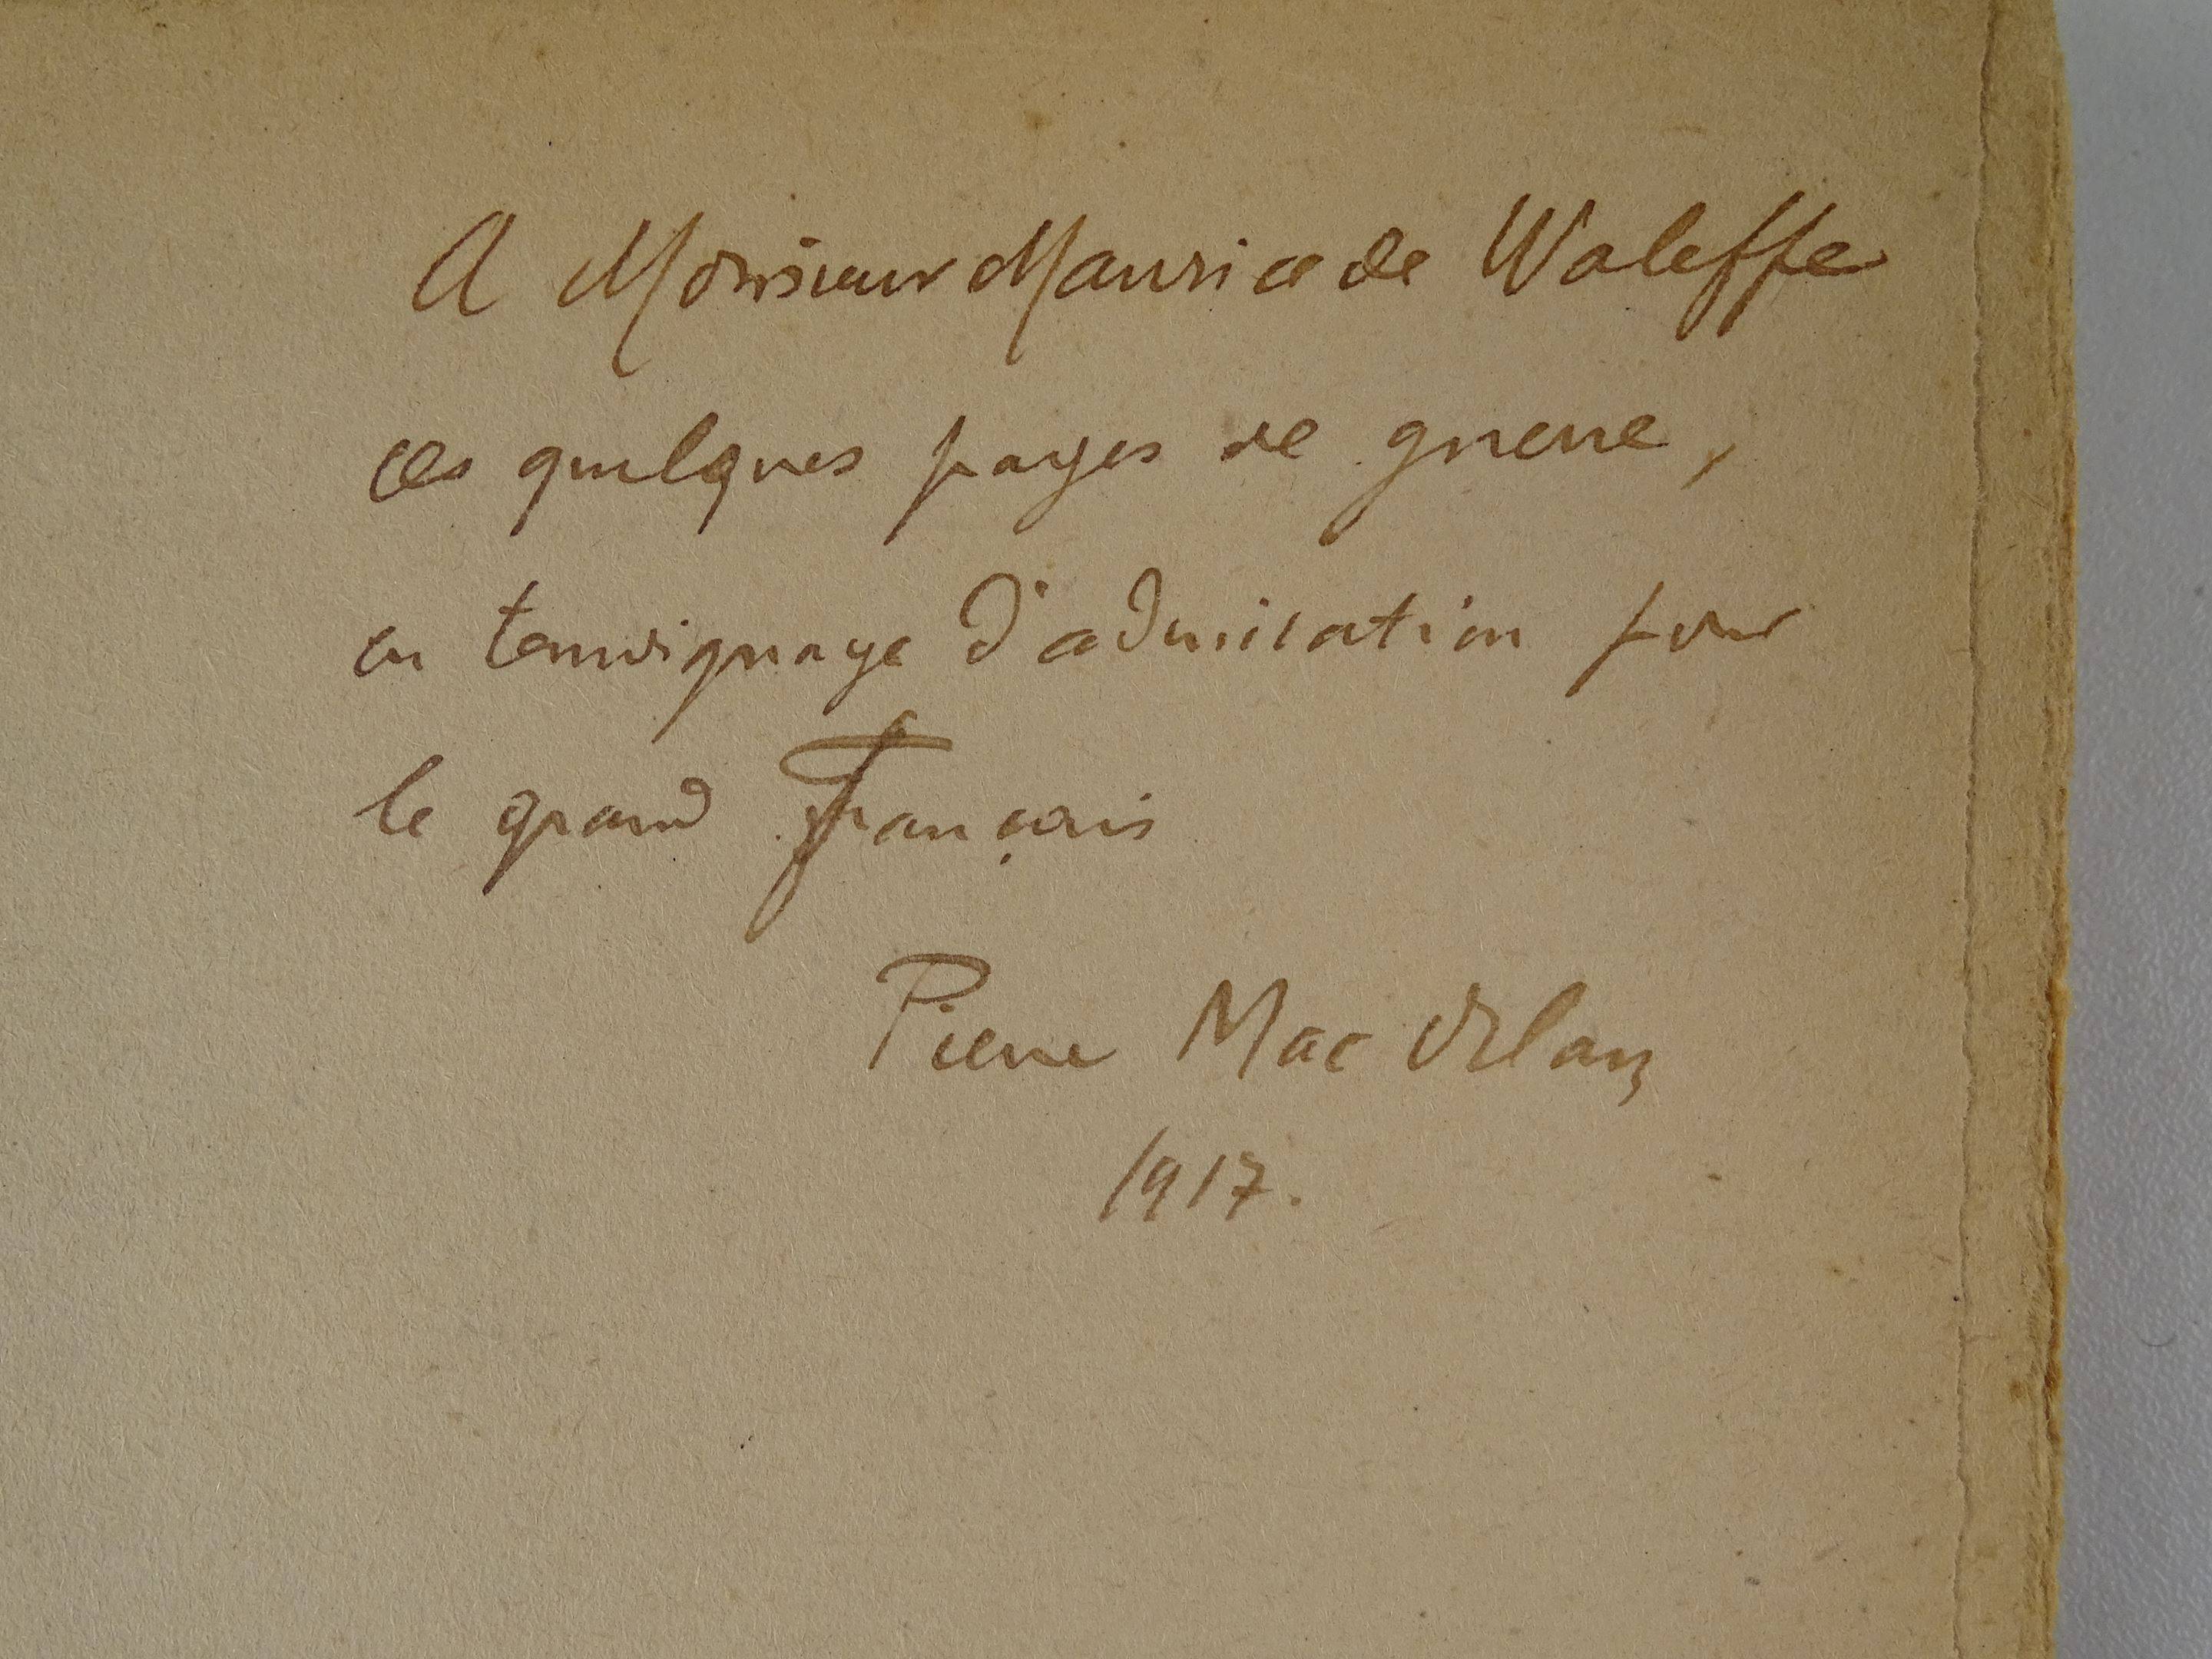 A Monsieur Maurice de Waleffe
ces quelques pages de guerre,
en temoignage d'admiration pour
le grand Français
Pierre Mac Orlan
1917.